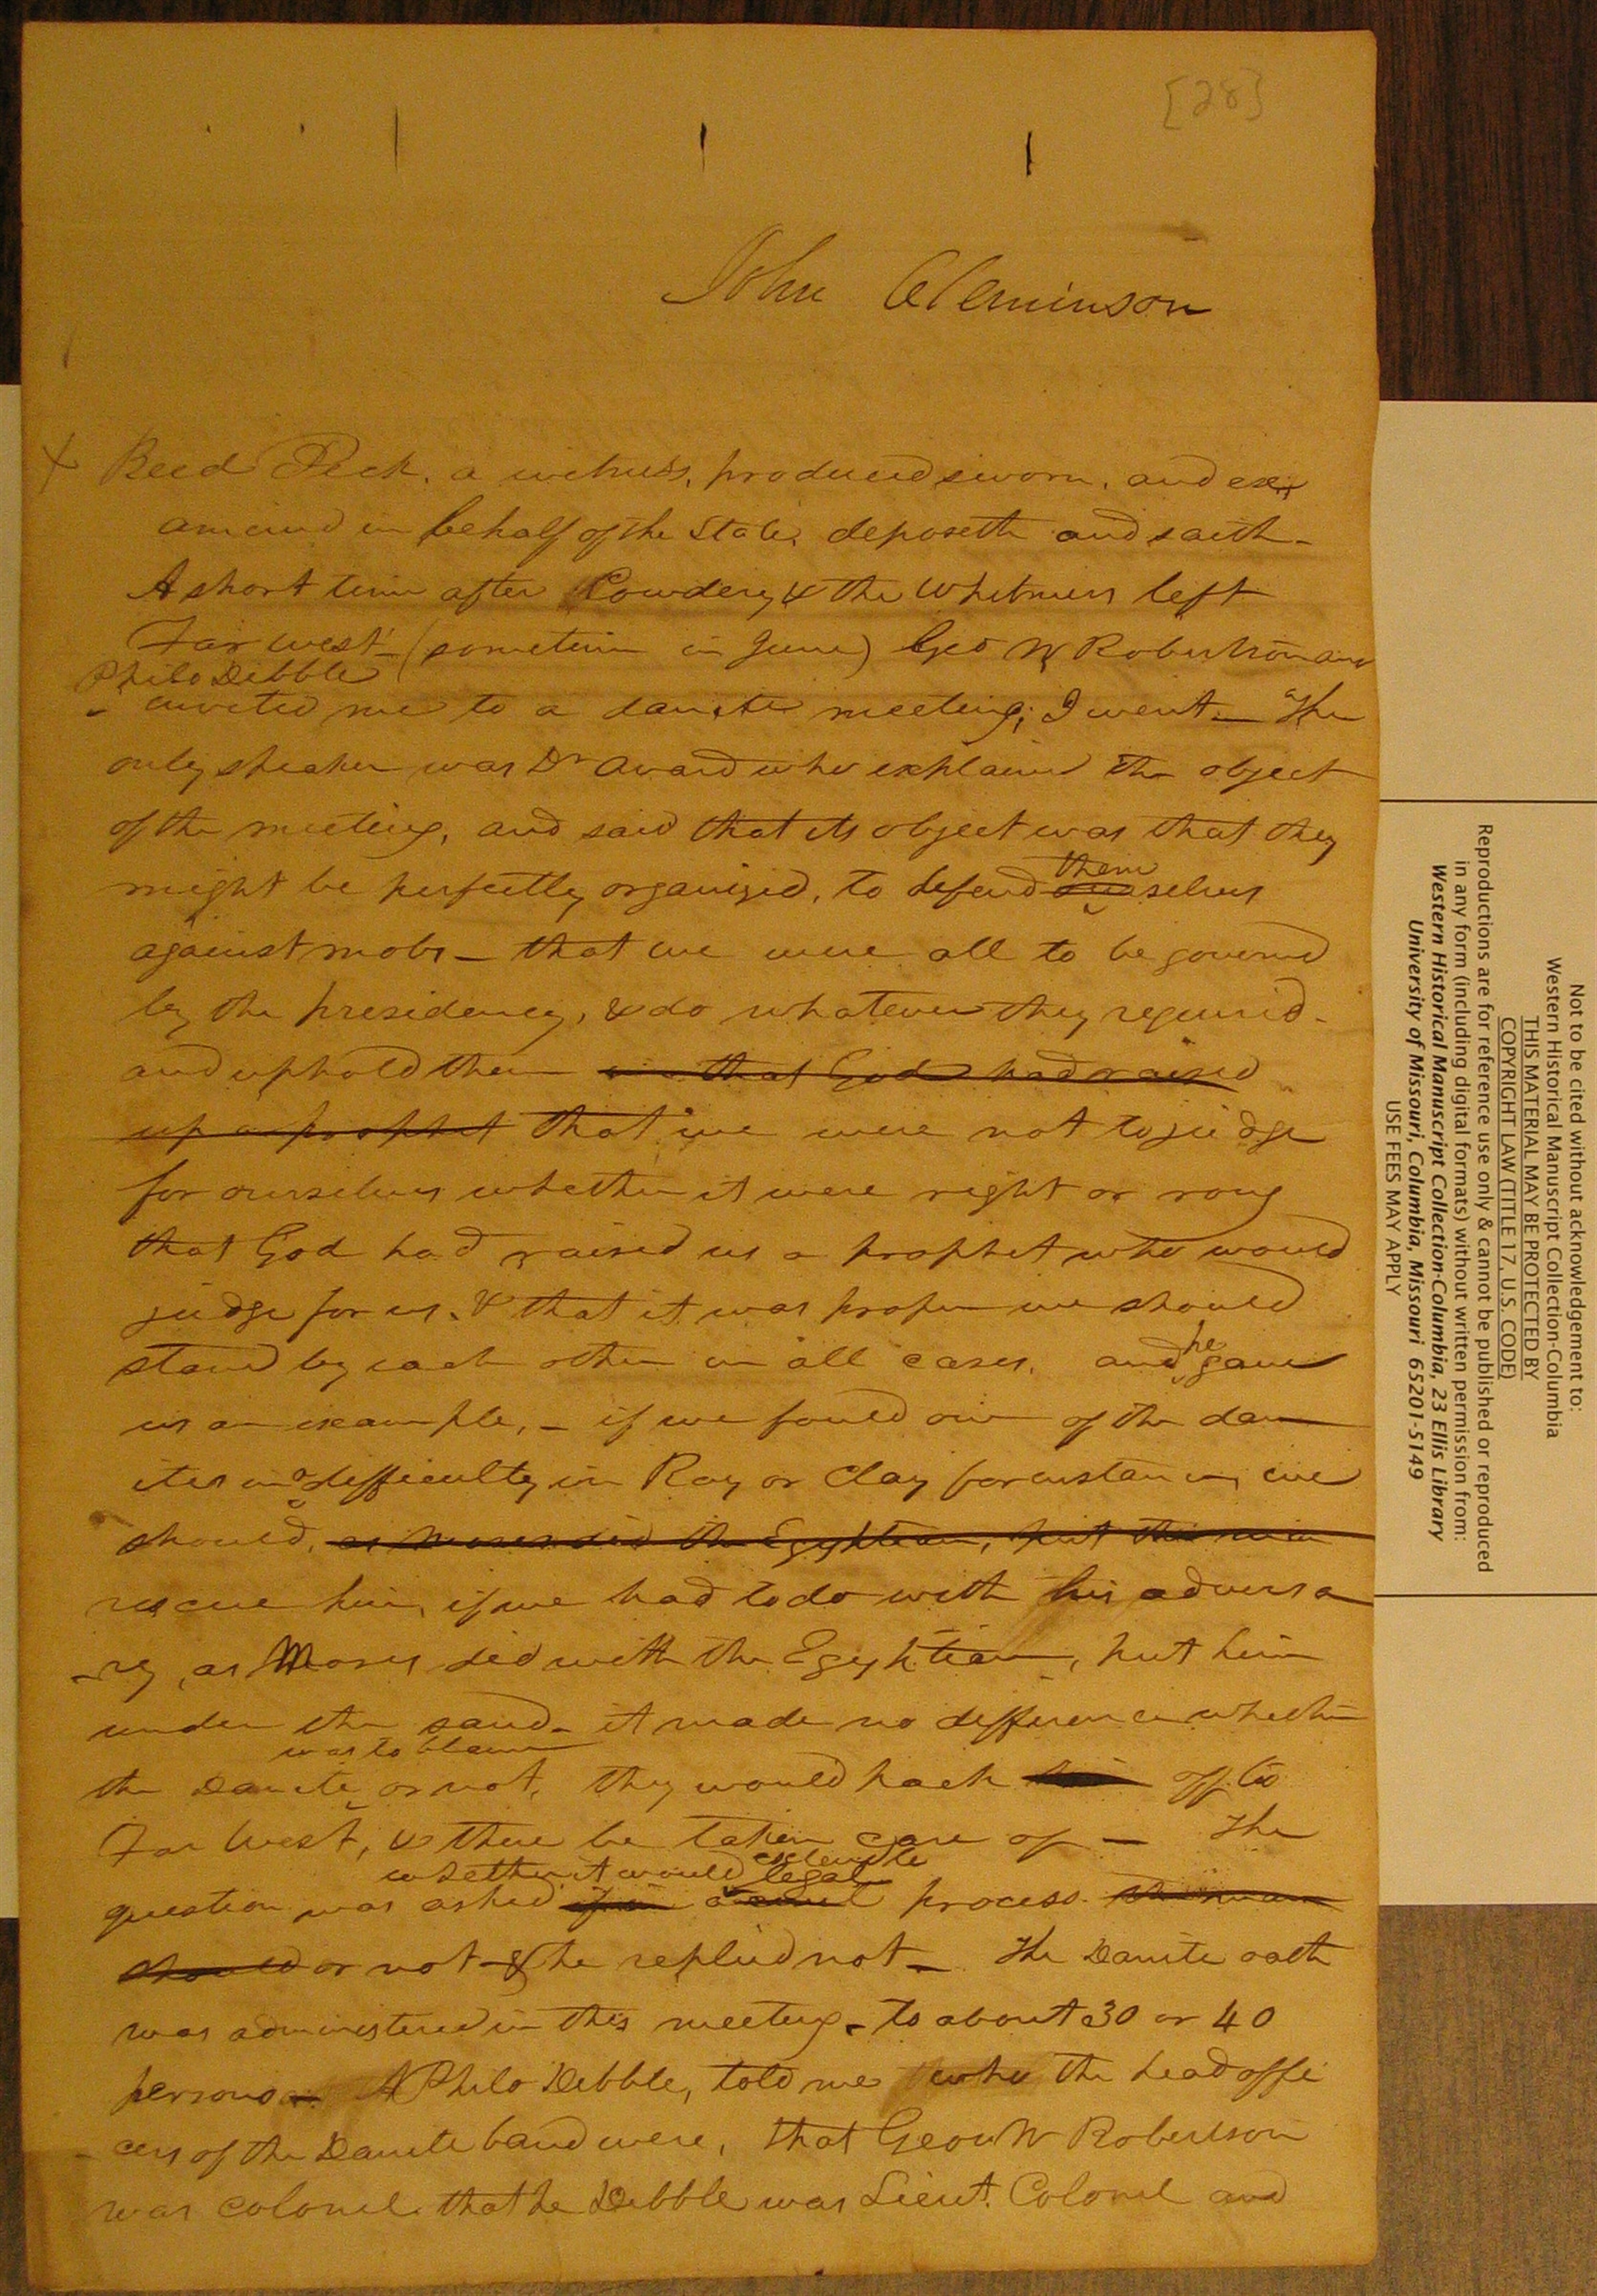 [28]
John Cleminson
Reed Peck, a witness, produced sworn, and ex,
amined in behalf of the State, deposeth and saith -
A short time after Cowdery & the Whitmers left
Far West - (sometime in June) Geo W Robertson and
Philo Dibble
invited me to a danite meeting; I went - The
only speaker was Dr Avard who explained the object
of the meeting, and said that its object was that they
them
might be perfectly organized, to defend ourselves
against mobs - that we were all to be governed
by the presidency, & do whatever they required -
and uphold them that God had raised
up a prophet that we were not to judge
for ourselves whether it were right or rong
that God had raised us a prophet who would
judge for us. & that it was proper we should
he
stand by each other in all cases. and gave
us an example, - if we found one of the dan
ites in a difficulty in Ray or Clay for instance, we
should, as Moses did the Egyptian, put this man
rescue him, if we had to do with his adversa
-ry, as Moses did with the Egyptian, put him
under the sand - it made no difference whether
was to blame
the Danite or not, they would pack him off to
Far West, & there be taken care of - The
whether it would legal
question was asked process
should or not - & he replied not - The Danite oath
was administered in this meeting - to about 30 or 40
persons - Philo Dibble, told me who the head offi
- cers of the Danite band were, that Geo W Robertson
was colonel that he Dibble was Lieut. Colonel and
Not to be cited without acknowledgement to:
Western Historical Manuscript Collection-Columbia
THIS MATERIAL MAY BE PROTECTED BY
COPYRIGHT LAW (TITLE 17, U.S. CODE)
Reproductions are for reference use only & cannot be published or reproduced
in any form (including digital formats) without written permission from:
Western Historical Manuscript Collection-Columbia, 23 Ellis Library
University of Missouri, Columbia, Missouri 65201-5149
USE FEES MAY APPLY